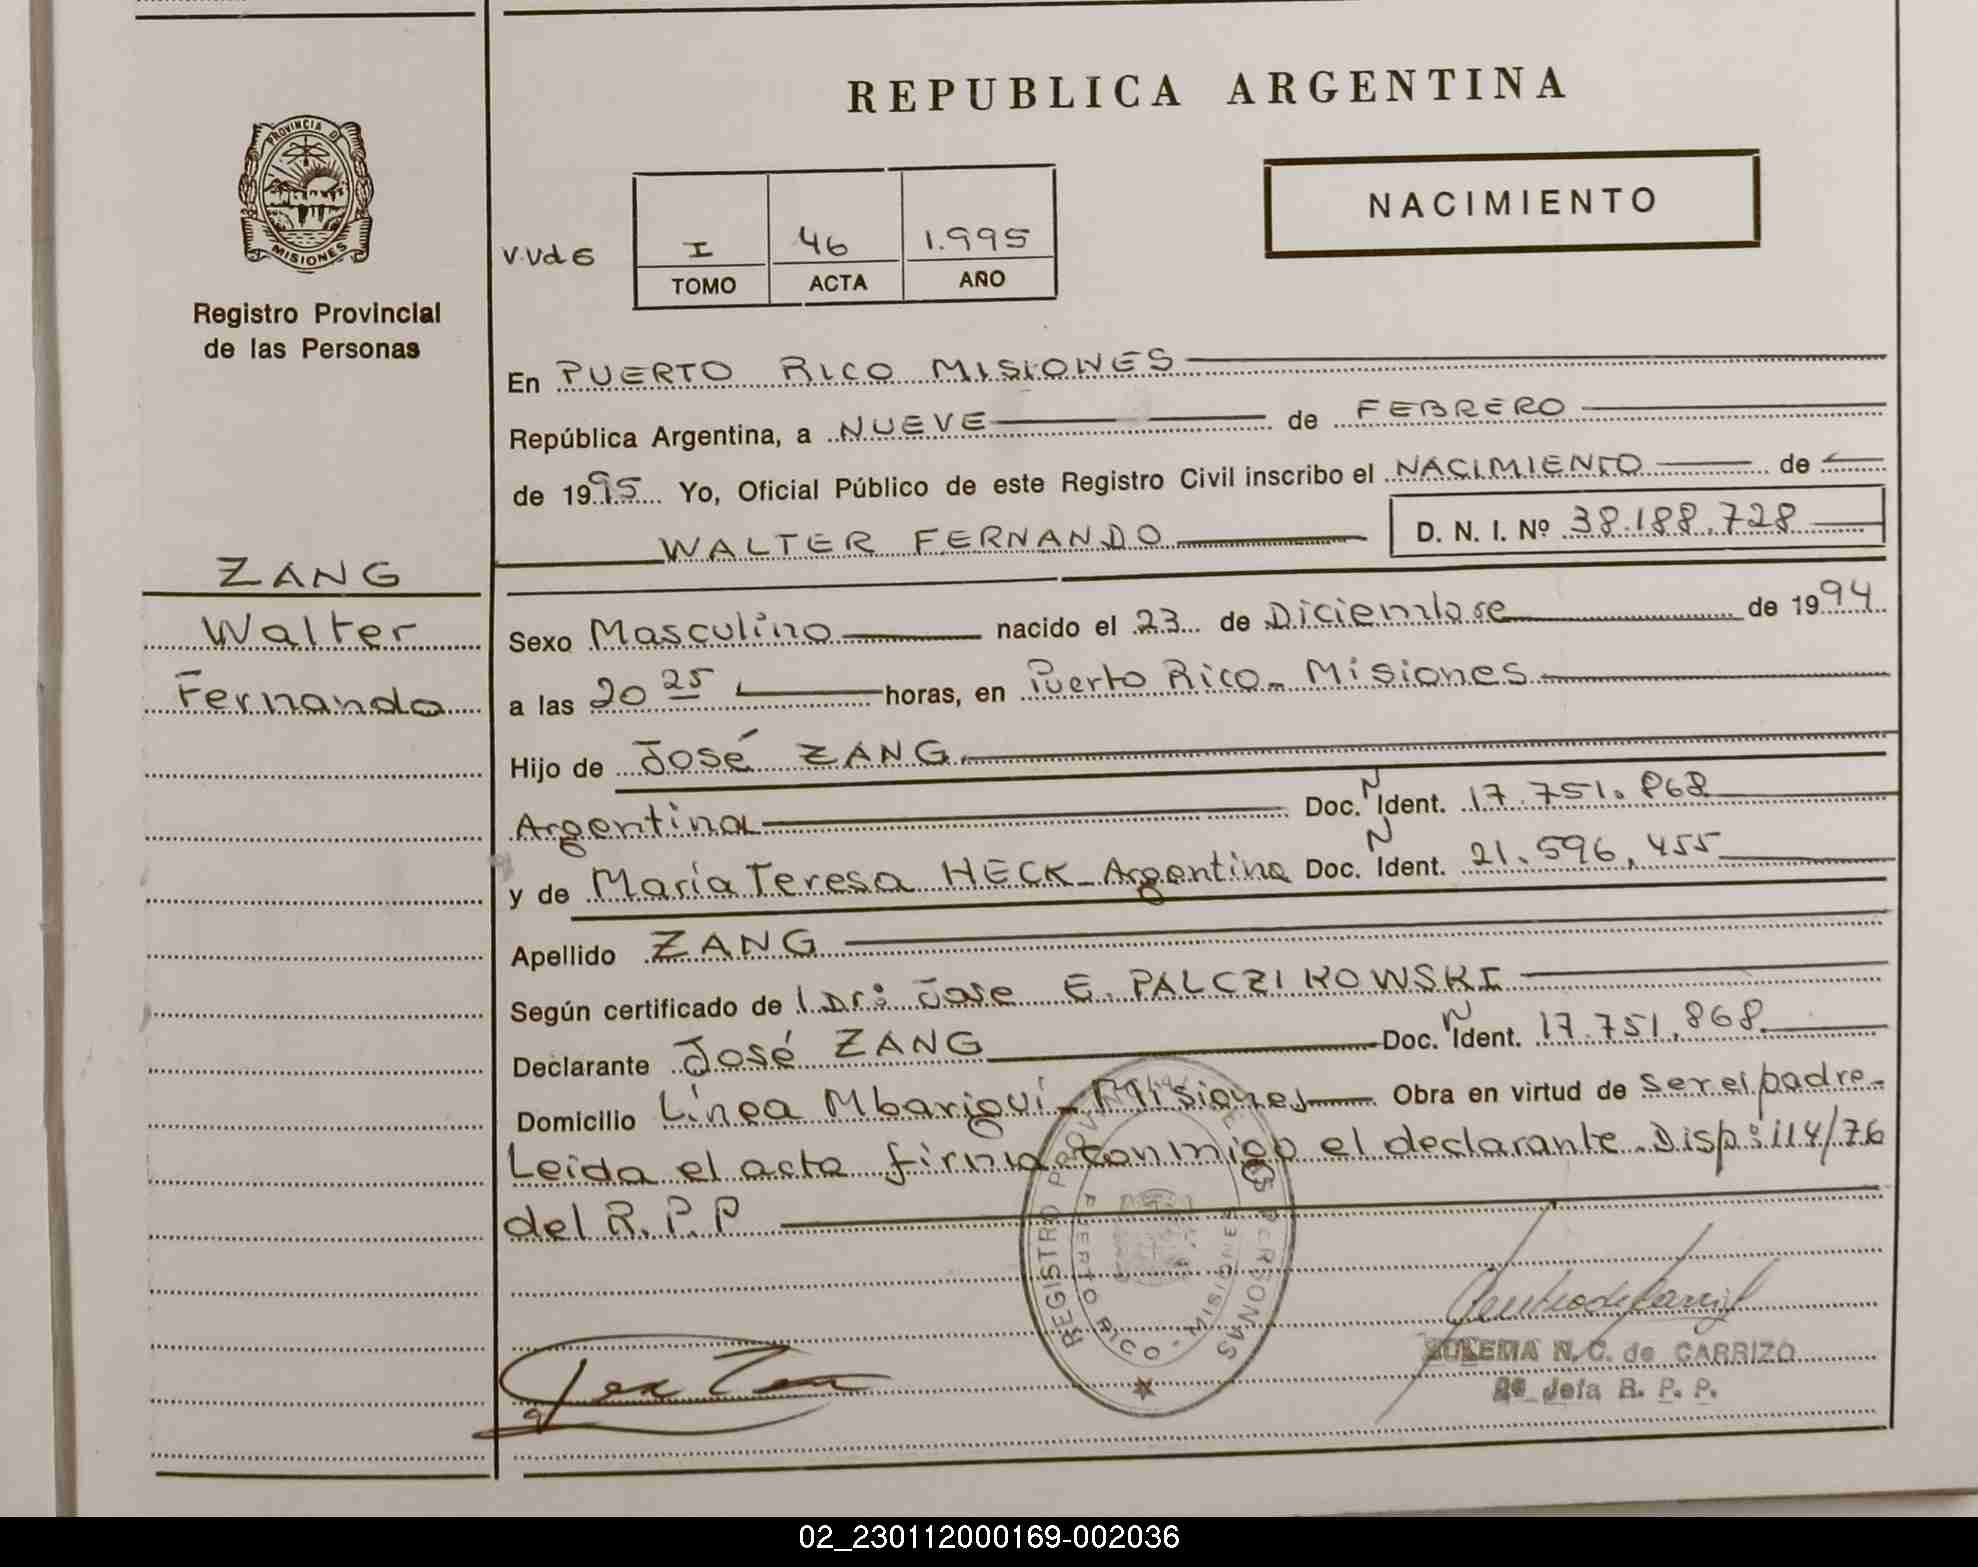 REPUBLICA ARGENTINA
PROVINCIA DE
MISIONES
Registro Provincial
de las Personas
V.Vd6
I 46 1.995
TOMO ACTA AÑO
NACIMIENTO
ZANG
Walter
Fernando
En PUERTO RICO MISIONES
República Argentina, a NUEVE de FEBRERO
de 1995 Yo, Oficial Público de este Registro Civil inscribo el NACIMIENTO de
WALTER FERNANDO D. N. I. Nº 38.188.728
Sexo Masculino nacido el 23 de Diciembre de 1994
a las 20 25 horas, en Puerto Rico - Misiones
Hijo de José ZANG
Argentina Doc. N Ident. 17.751.868
y de María Teresa HECK - Argentina Doc. N Ident. 21.596.455
Apellido ZANG
Según certificado de Dr: Jose E. PALCZIKOWSKI
Declarante José ZANG Doc. N Ident. 17.751.868
Domicilio Línea Mbariguí - Misiones Obra en virtud de ser el padre -
Leida el acta firma conmigo el declarante. Disp: 114/76
del R. P. P
REGISTRO PROV. DE LAS PERSONAS
PUERTO RICO - MISIONES
ZULEMA N. C. de CARRIZO
2º Jefa R. P. P.
02_230112000169-002036